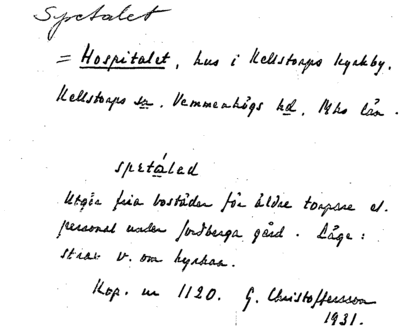 Spetalet
= Hospitalet, hus i Kellstorps kyrkby.
Kellstorps sn. Vemmenhögs hd. Mhs län.
spetálad
Utgör fria bostäder för äldre torpare el.
personal under Jordberga gård. Läge:
strax v. om kyrkan.
Kop. nr 1120. G. Christoffersson
1931.